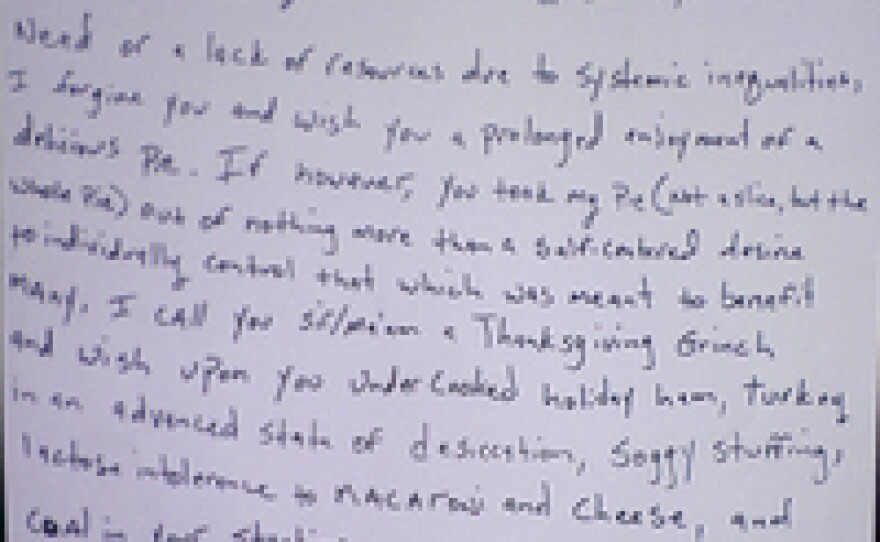 Need or a lack of resources due to systemic inequalities,
I forgive you and wish you a prolonged enjoyment of a
delicious Pie. If however, you took my Pie (not a slice, but the
whole Pie) out of nothing more than a self-centered desire
to individually control that which was meant to benefit
many, I call you sir/ma'am a Thanksgiving Grinch
and wish upon you undercooked holiday ham, turkey
in an advanced state of desiccation, soggy stuffing,
lactose intolerance to MACARONI and cheese, and
coal in your